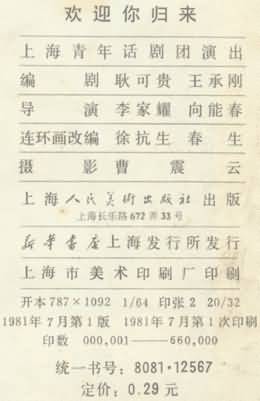 欢迎你归来
上海青年话剧团演出
编 剧 耿可贵 王承刚
导 演 李家耀 向能春
连环画改编 徐抗生 春 生
摄 影 曹 震 云
上海人民美术出版社出版
上海长乐路672弄33号
新华书店上海发行所发行
上海市美术印刷厂印刷
开本787×1092 1/64 印张2 20/32
1981年7月第1版 1981年7月第1次印刷
印数 000,001——660,000
统一书号：8081·12567
定价：0.29元